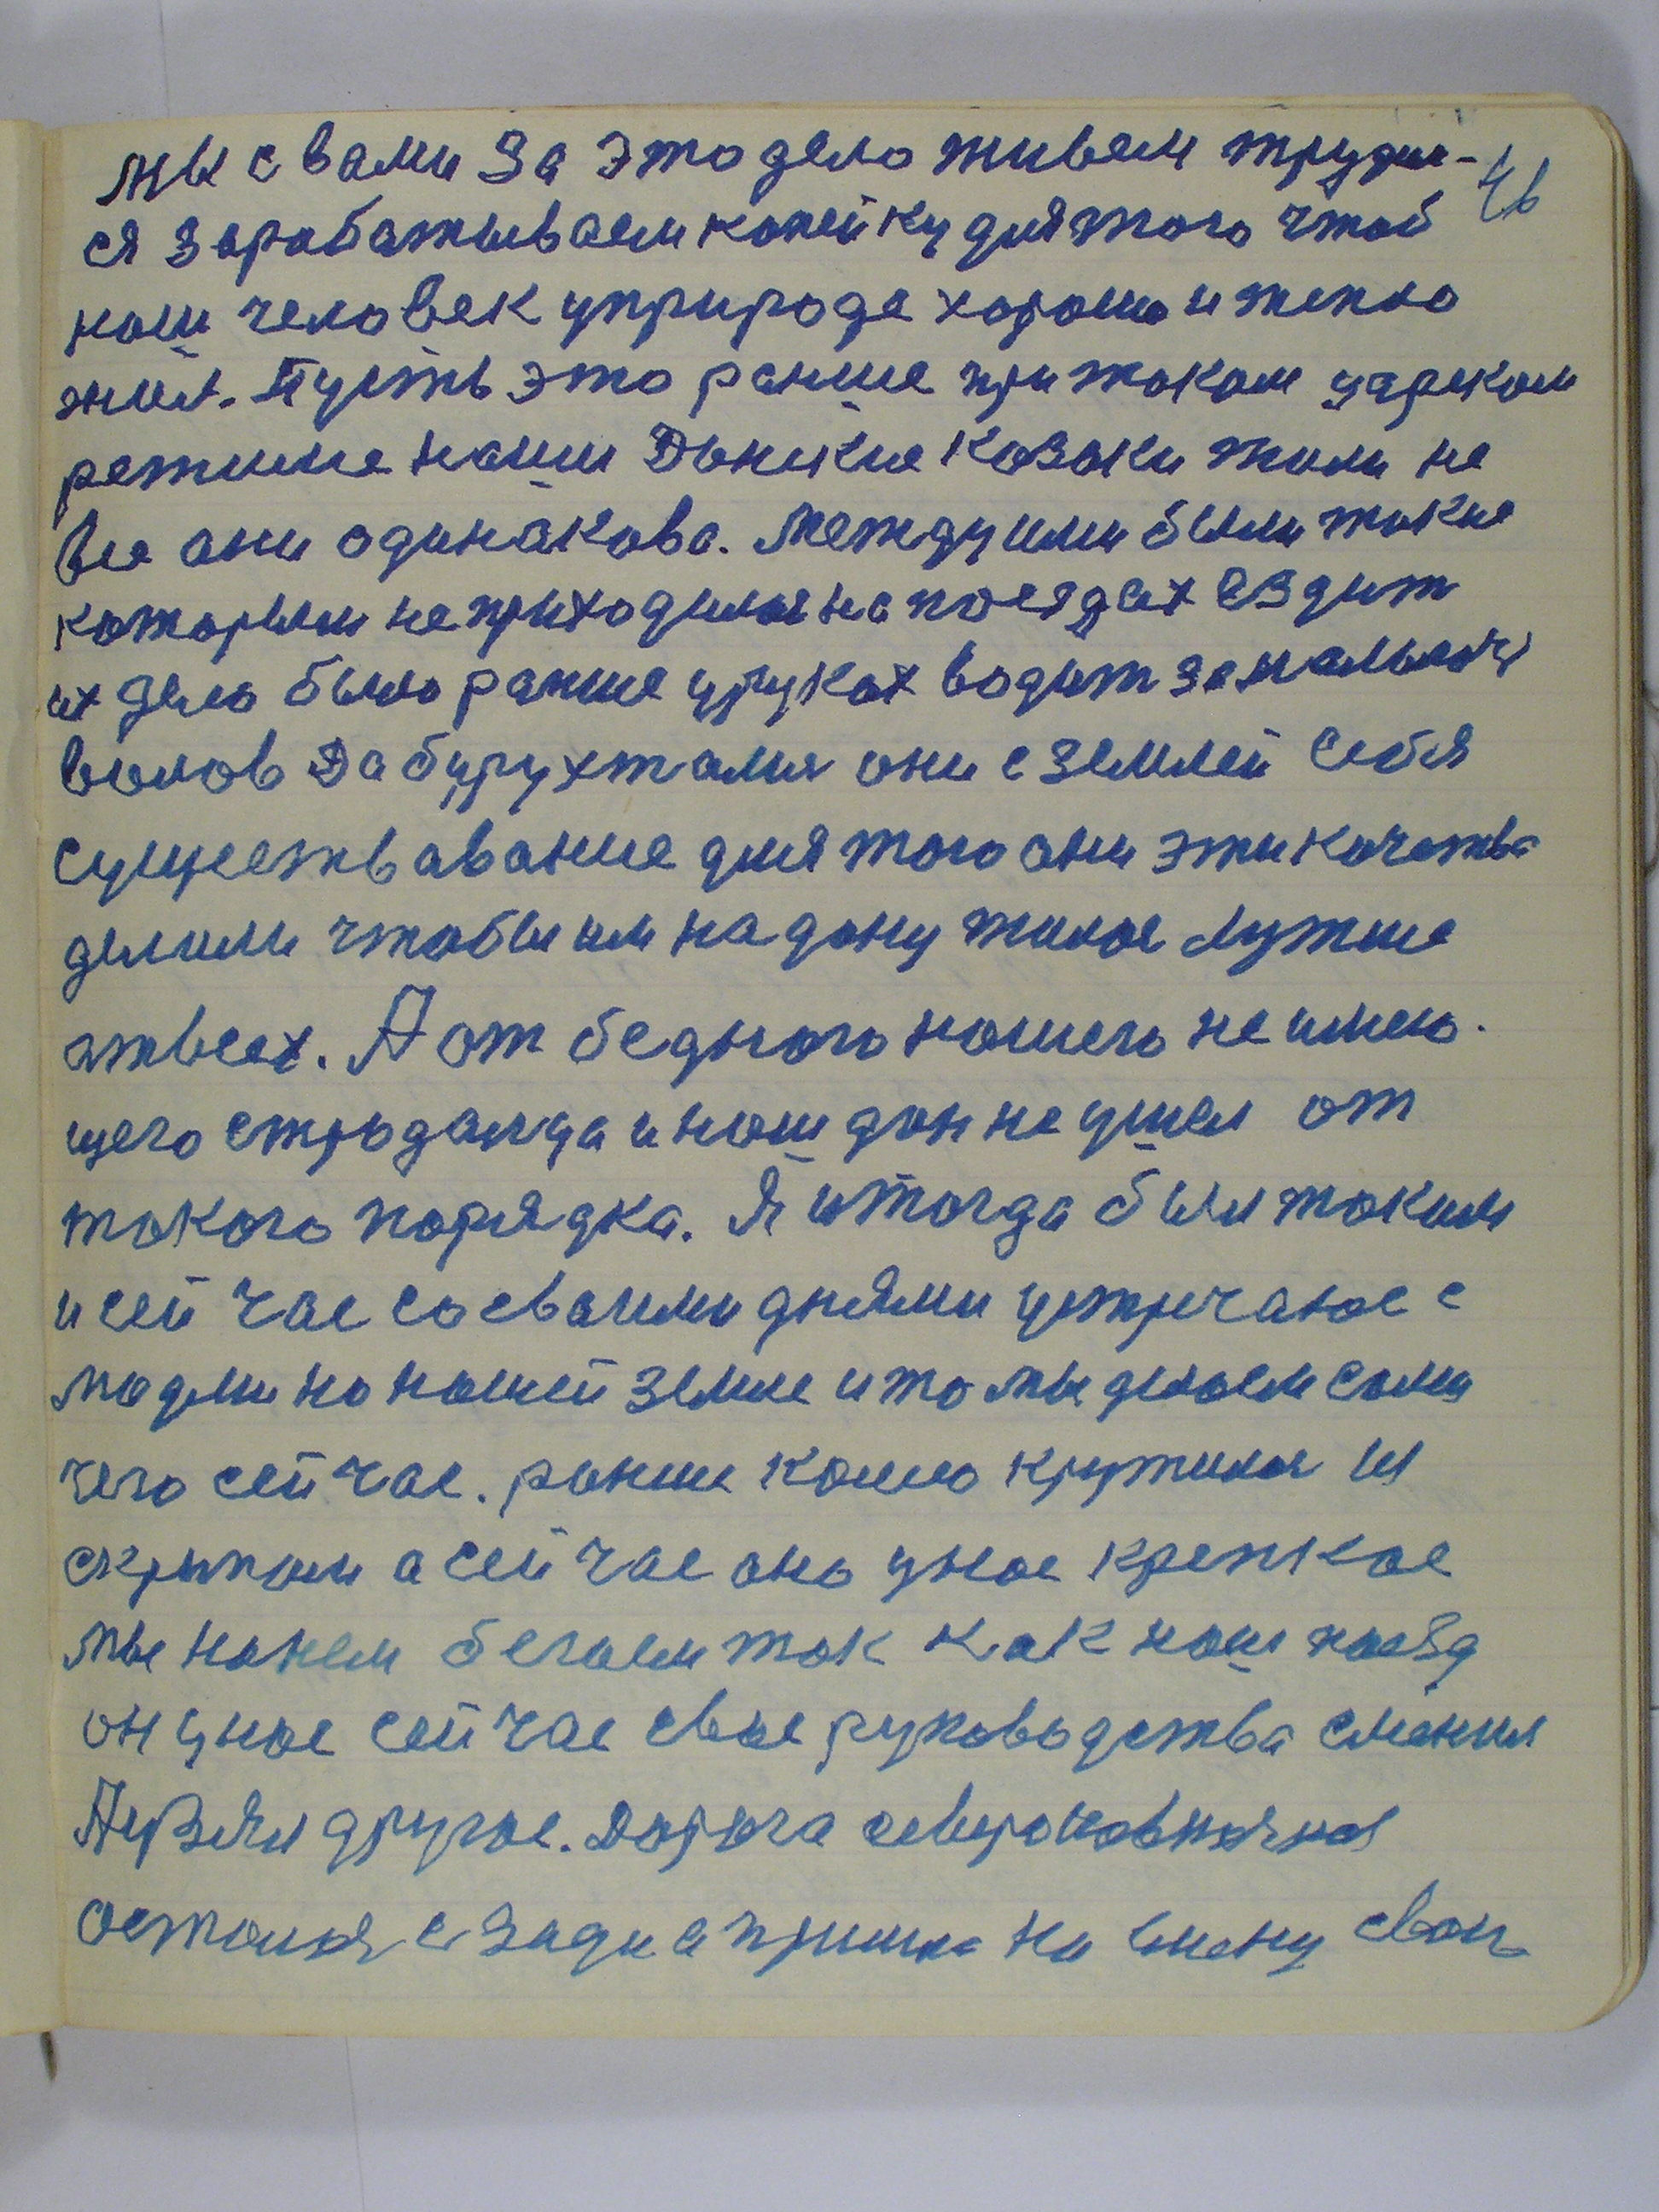 мы с вами за это дело живем трудим- 46
ся зарабатываем копейку для того чтоб
наш человек у природе хорошо и тепло
жил. Пусть это ранше при таком царском
режиме наши Донские казаки жили не
все ани одинакова. Между ими были такие
каторым не приходилося на поездах ездит
их дело было ранше у руках водит за налыгач
волов да бурухтали они с землей себя
существавание для того ани эти качества
делили чтобы им на дону жилос лутше
атвсех. А от бедного нашего не имею-
щего страдальца и наш дон не ушел от
такого порядка. Я и тогда был таким
и сей час со сваими днями устречаюс с
людми на нашей земле и то мы делаем сами
чего сейчас. ранше колесо крутилос и
скрыпом а сей час ано у нас крепкое
мы на нем бегаем так как наш поезд
он у нас сей час свое руководства сменил
А узял другое. Дорога северокавказская
осталася с зади а пришла на смену свои